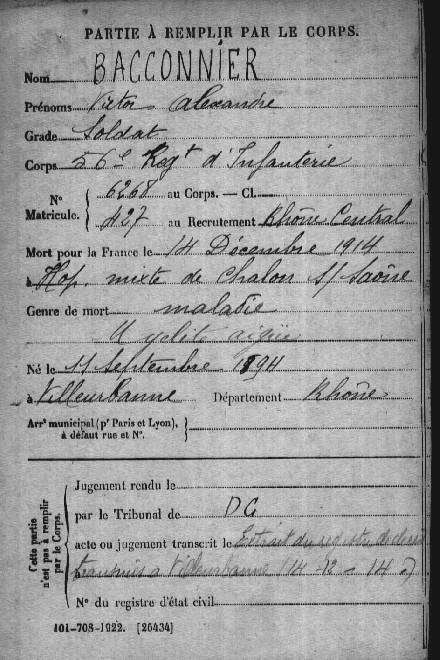 PARTIE À REMPLIR PAR LE CORPS.
Nom BACCONNIER
Prénoms Victor Alexandre
Grade Soldat
Corps 56e Regt d'Infanterie
N° Matricule. { 6268 au Corps. — Cl.
427 au Recrutement Rhône Central
Mort pour la France le 14 Décembre 1914
à Hop. mixte de Chalon s/ Saône
Genre de mort maladie
aigüe
Né le 11 Septembre 1894
à Villeurbanne Département Rhône
Arrt municipal (pr Paris et Lyon), à défaut rue et N°. }
Cette partie n'est pas à remplir par le Corps.
Jugement rendu le
par le Tribunal de DC
acte ou jugement transcrit le Extrait du registre de décès
transmis à Villeurbanne (14-12-14)
N° du registre d'état civil
101-708-1922. [26434]